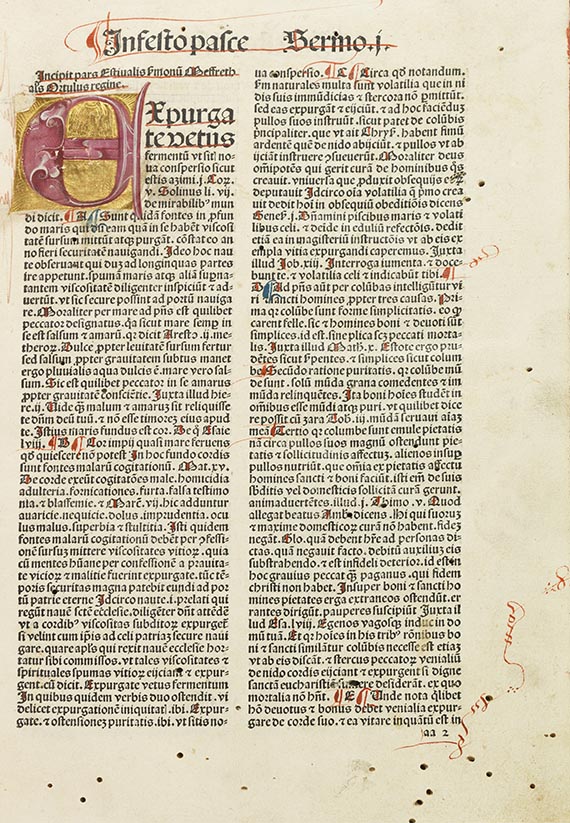 In festo pasce Sermo .j.
Incipit pars Estiualis sermonū Meffreth
als Ortulus regine.
Expurga
te vetus
fermentū vt sitis no-
ua conspersio sicut
estis azimi .j. Cor.
v. Solinus li. vij.
de mirabilibꝰ mun
di dicit. A Sunt quidā fontes in ꝓfun
do maris qui dseam quā in se habēt viscosi
tatē sursum mittūt atqꝫ purgāt. cōstat eo an
no fieri securitatē nauigandi. Ideo hoc nau
te obseruant qui duꝫ ad longinquas partes
ire appetunt. spumā maris atqꝫ aliā supna-
tantem viscositatē diligenter inspiciūt ⁊ ad-
uertūt. vt sic secure possint ad portū nauiga
re. Moraliter per mare ad p̄ns est quilibet
peccator designatus. q̄a sicut mare semꝑ in
se est salsum ⁊ amarū. qr̄ dicit Aresto .ij. me-
theoroꝝ. Dulce ꝓpter leuitatē sursum fertur
sed salsum ꝓpter grauitatem subtus manet
ergo pluuialis aqua dulcis ē. mare vero sal-
sum. Sic est quilibet peccator in se amarus
ꝓpter grauitatē cōscientie. Juxta illud hie-
re. ij. Uide qꝫ malum ⁊ amarūꝫ sit reliquisse
te dn̄m deū tuū. ⁊ nō esse timoreꝫ eius apud
te. Istius maris fundus est cor. De q̄ Esaie
lviij. B Cor impij quasi mare feruens
qd̓ quiescere nō potest In hoc fundo cordis
sunt fontes malarū cogitationū. Mat. xv.
De corde exeūt cogitatōes male. homicidia
adulteria. fornicatiōes. furta. falsa testimo
nia. ⁊ blasfemie. ⁊ Mar̄. vij. hic adduntur
auaricie. nequicie. dolus. impudicitie. ocu
lus malus. superbia ⁊ stultitia. Isti quidem
fontes malarū cogitationū debēt per ꝓfessi-
onē sursuꝫ mittere viscositates vitioꝝ. quia
cū mentes hūane per confessionē a prauita-
te vicioꝝ ⁊ malitie fuerint expurgate. tūc tē-
poris securitas magna patebit eundi ad por
tū patrie eterne Idcirco naute .i. prelati qui
regūt nauē scē ecclesie. diligēter dn̄t attēdē
vt a cordibꝰ viscositas subditoꝝ expurgetᷣ
si velint cum ip̄is ad celi patriaꝫ secure naui
gare. quare apl̓s qui rexit nauē ecclesie hor-
tatur sibi cōmissos. vt tales viscositates ⁊
spirituales spumas vitioꝝ eijciant ⁊ expur-
gent. cū dicit. Expurgate vetus fermentum
In quibus quidem verbis duo ostendit. vi
delicet expurgationē iniquitatꝭ. ibi. Expur-
gate. ⁊ ostensioneꝫ puritatis. ibi. vt sitis no-
ua conspersio. C Circa qd̓ notandum.
ꝙ naturales multa sunt volatilia que in ni
dis suis immūdicias ⁊ stercora nō ꝑmittūt.
sed eas expurgāt ⁊ eijciūt. ⁊ ad hoc faciēduꝫ
pullos suos instruūt. sicut patet de colūbis
pncipaliter. que vt ait Chrys. habent fimū
ardentē quē de nido abijciūt. ⁊ pullos vt ab
ijciāt instruere ꝓsueuerūt. Moraliter deus
om̄ipotēs qui gerit curā de hominibꝰ qͦs
creauit. vniuersa que ꝓduxit obsequijs eoꝝ
deputauit Idcirco oīa volatilia qͣ prio crea
uit dedit hoī in obsequiū obeditiōis dicens
Genes. j. Dn̄amini piscibus maris ⁊ volati
libus celi. ⁊ deinde in eduliū refectōis. dedit
etiā ea in magisteriū instructōis vt ab eis ex
empla vite expurgandi capere mus. Juxta
illud Job. xij. Interroga iumenta. ⁊ doce-
bunt te. ⁊ volatilia celi ⁊ indicabūt tibi.
D Ad p̄ns aūt per colūbas intelligūtur vi
ri sancti homines ꝓpter tres causas. Pri
ma qr̄ colūbe sunt forme simplicitatis. eo qͦ
carent felle. sic ⁊ homines boni ⁊ deuoti sūt
simplices. id est sine plica seꝫ peccati morta-
lis. Juxta illud Math. x. Estote ergo pru-
dētes sicut sꝑentes. ⁊ simplices sicut colum
be Secūdo ratione puritatis. qr̄ colūbe mū
de sunt. solū mūda grana comedentes ⁊ im
munda relinquētes. Ita boni hoīes student in
om̄ibus esse mūdi atqꝫ puri. vt quilibet dice
re possit cū zara Tob. iij. mūdā seruaui aīaꝫ
meā Tertio qr̄ columbe sunt emule pietatis
nā circa pullos suos magnū ostendunt pie-
tatis ⁊ sollicitudinis affectuꝫ. alienos insup̄
pullos nutriūt. que om̄ia ex pietatis affectu
homines sancti ⁊ boni faciūt. isti em̄ de suis
sb̄ditis vel domesticis sollicitā curā gerunt.
animaduertētes. illud .j. Thimo. v. Quod
allegat beatus Amb. dicens. Hi qui suoruꝫ
⁊ maxime domesticoꝝ curā nō habent. fideꝫ
negāt. Glo. quā debent hr̄e ad personas di-
ctas. quā negauit facto. debitū auxiliuꝫ eis
substrahendo. ⁊ est infideli deterior. id est in
hoc grauius peccat qꝫ paganus. qui fidem
christi non habet. Insuper boni ⁊ sancti ho
mines pietates erga extraneos ostendūt. er
rantes dirigūt. pauperes suscipiūt Juxta il
lud Esa. lviij. Egenos vagosqꝫ induc in do
mū tuā. Et qr̄ hoīes in his tribꝰ rōnibus bo
ni ⁊ sancti similātur colūbis necesse est etiaꝫ
vt ab eis discāt. ⁊ stercus peccatoꝝ venialiū
de nido cordis eijciant ⁊ expurgent si digne
sanctā eucharistiā sumere desiderāt. ex quo
mortalia nō hn̄t. E Unde nota qͥlibet
hō deuotus ⁊ bonus debet venialia expur-
gare de corde suo. ⁊ ea vitare inquātū est in
aa 2